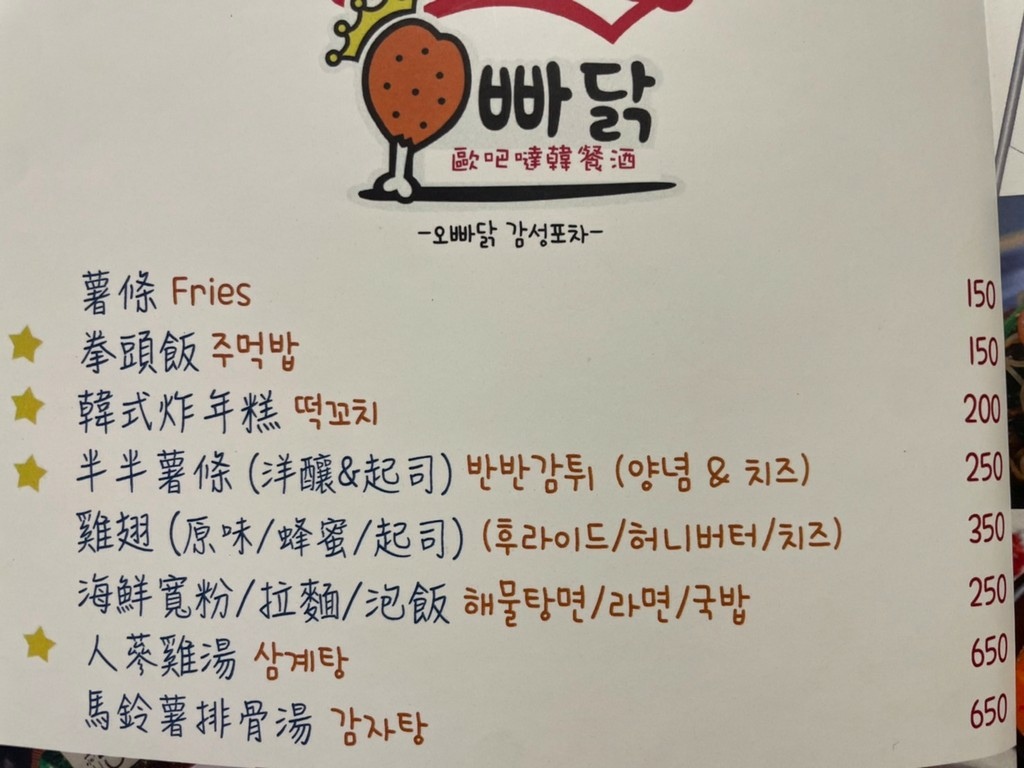 오빠닭
歐吧噠韓餐酒
-오빠닭 감성포차-
薯條 Fries 150
拳頭飯 주먹밥 150
韓式炸年糕 떡꼬치 200
半半薯條 (洋釀&起司) 반반감튀 (양념 & 치즈) 250
雞翅 (原味/蜂蜜/起司) (후라이드/허니버터/치즈) 350
海鮮寬粉/拉麵/泡飯 해물탕면/라면/국밥 250
人蔘雞湯 삼계탕 650
馬鈴薯排骨湯 감자탕 650